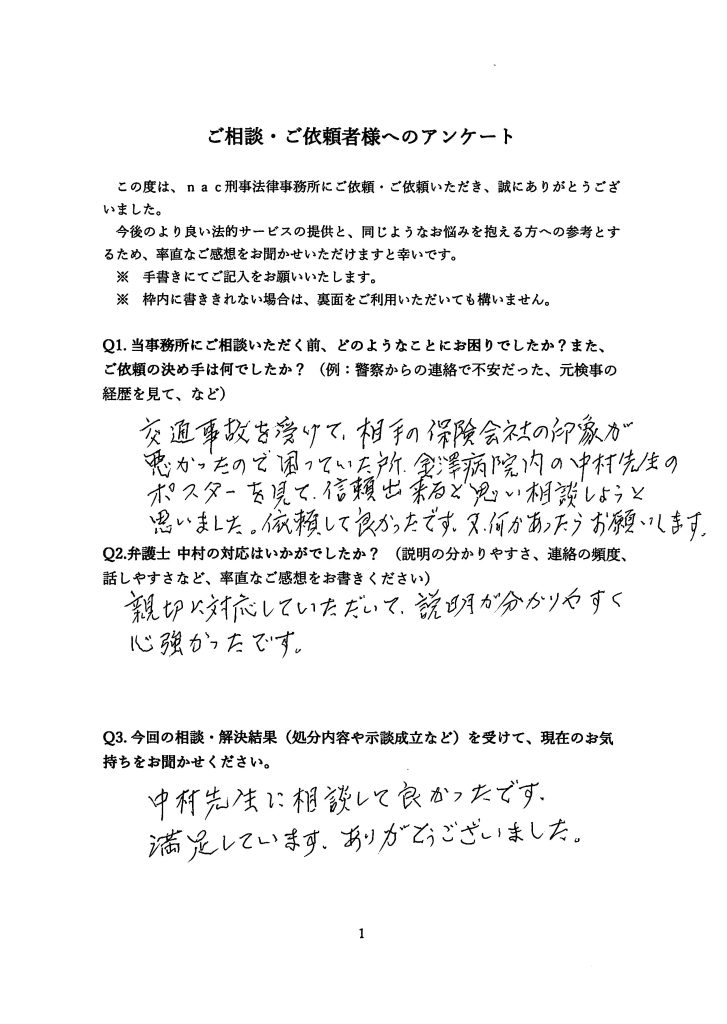 ご相談・ご依頼者様へのアンケート
この度は、ｎａｃ刑事法律事務所にご依頼・ご依頼いただき、誠にありがとうござ
いました。
今後のより良い法的サービスの提供と、同じようなお悩みを抱える方への参考とす
るため、率直なご感想をお聞かせいただけますと幸いです。
※　手書きにてご記入をお願いいたします。
※　枠内に書ききれない場合は、裏面をご利用いただいても構いません。
Q1. 当事務所にご相談いただく前、どのようなことにお困りでしたか？また、
ご依頼の決め手は何でしたか？（例：警察からの連絡で不安だった、元検事の
経歴を見て、など）
交通事故を受けて、相手の保険会社の印象が
悪かったので困っていた所、金澤病院内の中村先生の
ポスターを見て、信頼出来ると思い相談しようと
思いました。依頼して良かったです、又、何かあったらお願いします。
Q2.弁護士 中村の対応はいかがでしたか？（説明の分かりやすさ、連絡の頻度、
話しやすさなど、率直なご感想をお書きください）
親切に対応していただいて、説明が分かりやすく
心強かったです。
Q3. 今回の相談・解決結果（処分内容や示談成立など）を受けて、現在のお気
持ちをお聞かせください。
中村先生に相談して良かったです、
満足しています、ありがとうございました。
1